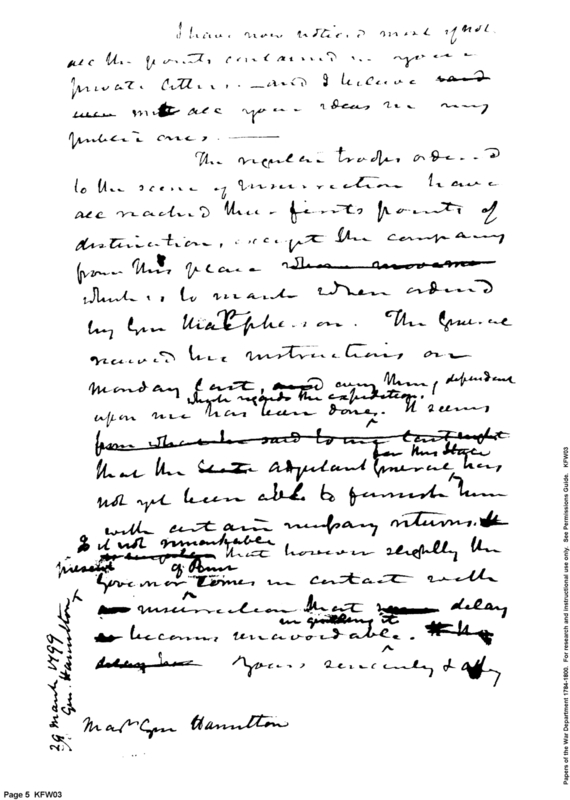 I have now noticed most if not
all the points contained in your
private letters — and I believe said
met all your ideas in my
public ones. —
The regular troops ordered
to the scene of insurrection have
all reached their firsts points of
distination, except the company
from this place whose movement
which is to march when ordered
by Gen MacPherson. The General
received his instructions on
monday last, and every thing, dependent
which regards the expedition,
upon me has been done. It seems
from what he said to me last night
for this State
that the State adjutant General has
not yet been able to furnish him
with certain necessary returns. It
Is it not remarkable
that however slightly the
present of Penn
Governor comes in contact with
insurrection that delay
in quelling it
becomes unavoidable.
delay
Yours sincerely & affy
29 March 1799
Gen. Hamilton
Majr Gen Hamilton
Page 5 KFW03
Papers of the War Department 1784-1800. For research and instructional use only. See Permissions Guide. KFW03